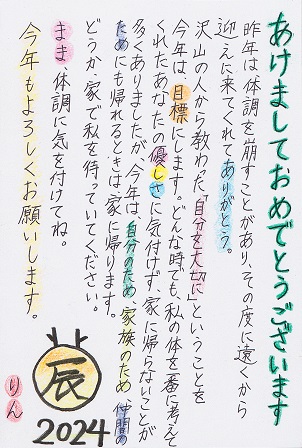 あけましておめでとうございます
昨年は体調を崩すことがあり、その度に遠くから
迎えに来てくれてありがとう。
沢山の人から教わった「自分を大切に」ということを
今年は、目標にします。どんな時でも、私の体を一番に考えて
くれたあなたの優しさに気付けず、家に帰らないことが
多くありましたが、今年は、自分のため、家族のため、仲間の
ためにも帰れるときは、家に帰ります。
どうか、家で私を待っていてください。
まま、体調に気を付けてね。
今年もよろしくお願いします。
辰
2024
りん